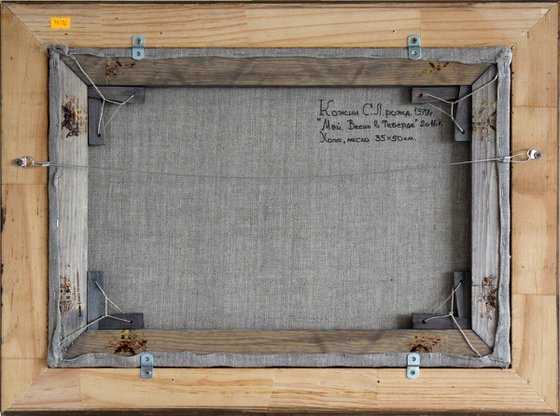 Кожин С.Л. рожд. 1979г.
"Май. Весна в Теберде" 2016г.
Холст, масло 35×50см.